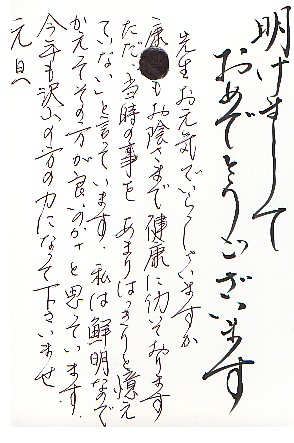 明けまして
おめでとうございます
先生お元気でいらっしゃいますか
康 もお陰さまで健康に仂いております
ただ、当時の事を あまりはっきりと憶え
ていない」と言っています。私は鮮明なので
かえってその方が良いのか?と思っています。
今年も沢山の方の力になって下さいませ
元旦